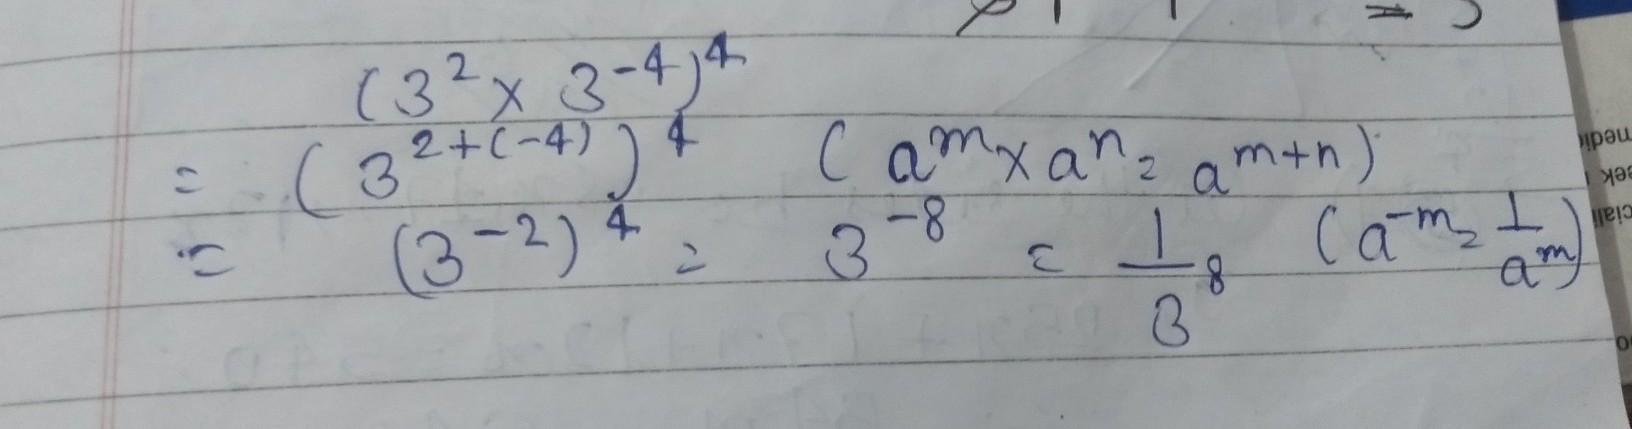 (3² × 3⁻⁴)⁴
= (3²⁺⁽⁻⁴⁾)⁴ (aᵐ × aⁿ = aᵐ⁺ⁿ)
= (3⁻²)⁴ = 3⁻⁸ = 1/3⁸ (a⁻ᵐ = 1/aᵐ)